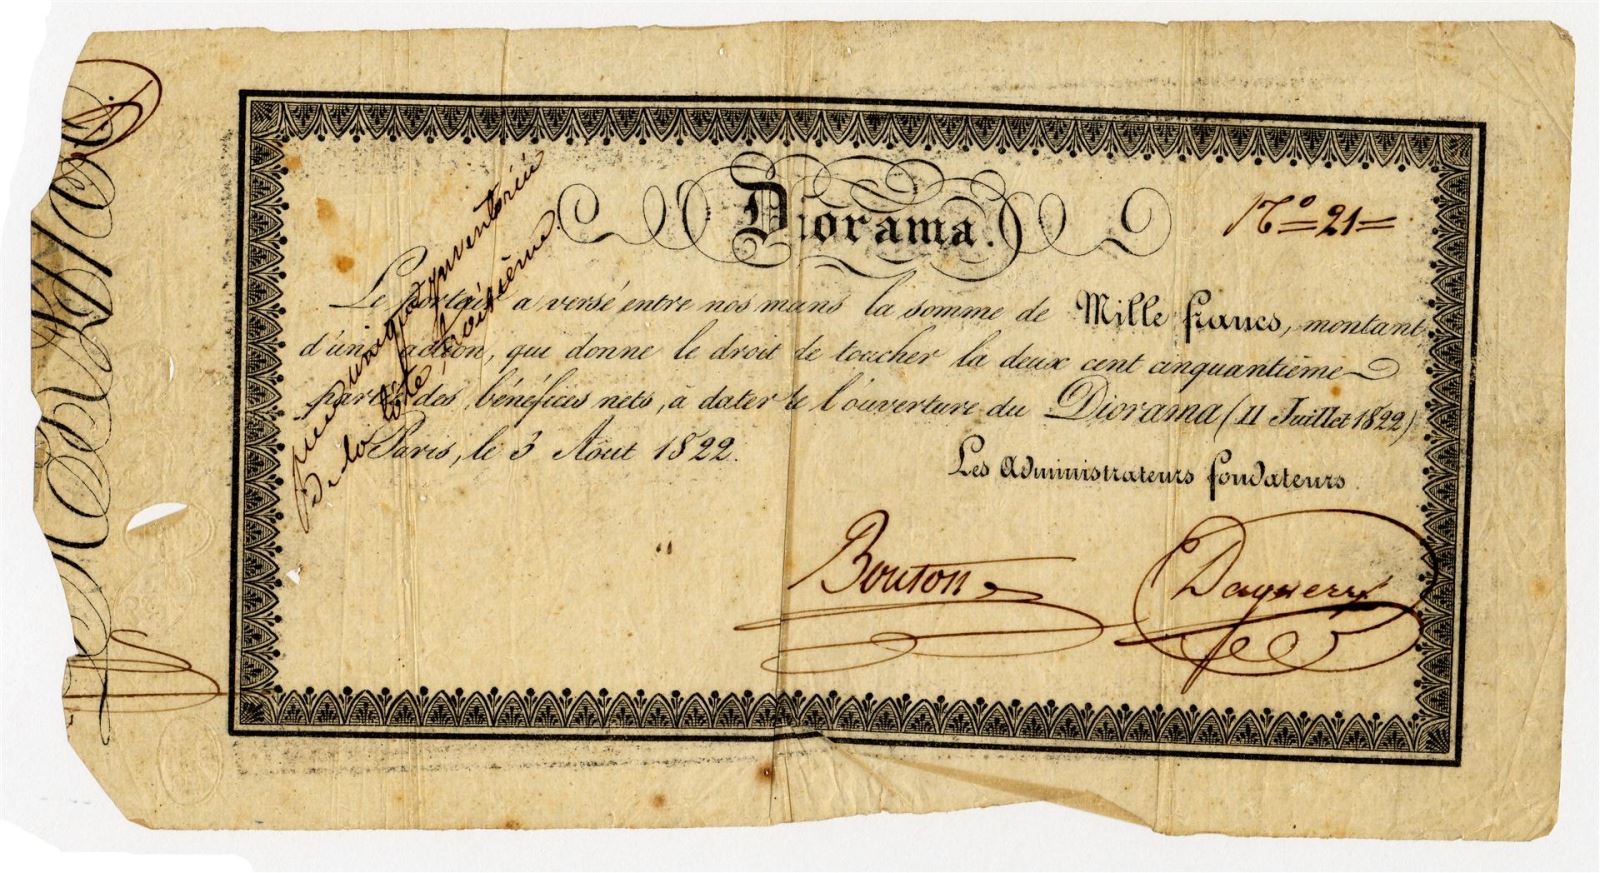 Diorama.
Nº 21
Le porteur a versé entre nos mains la somme de Mille francs, montant
d'une action, qui donne le droit de toucher la deux cent cinquantième
partie des bénéfices nets, à dater de l'ouverture du Diorama (11 Juillet 1822)
Paris, le 3 Août 1822.
Les Administrateurs fondateurs.
Bouton
Daguerre
pièce unique inventoriée
De la côte troisième.